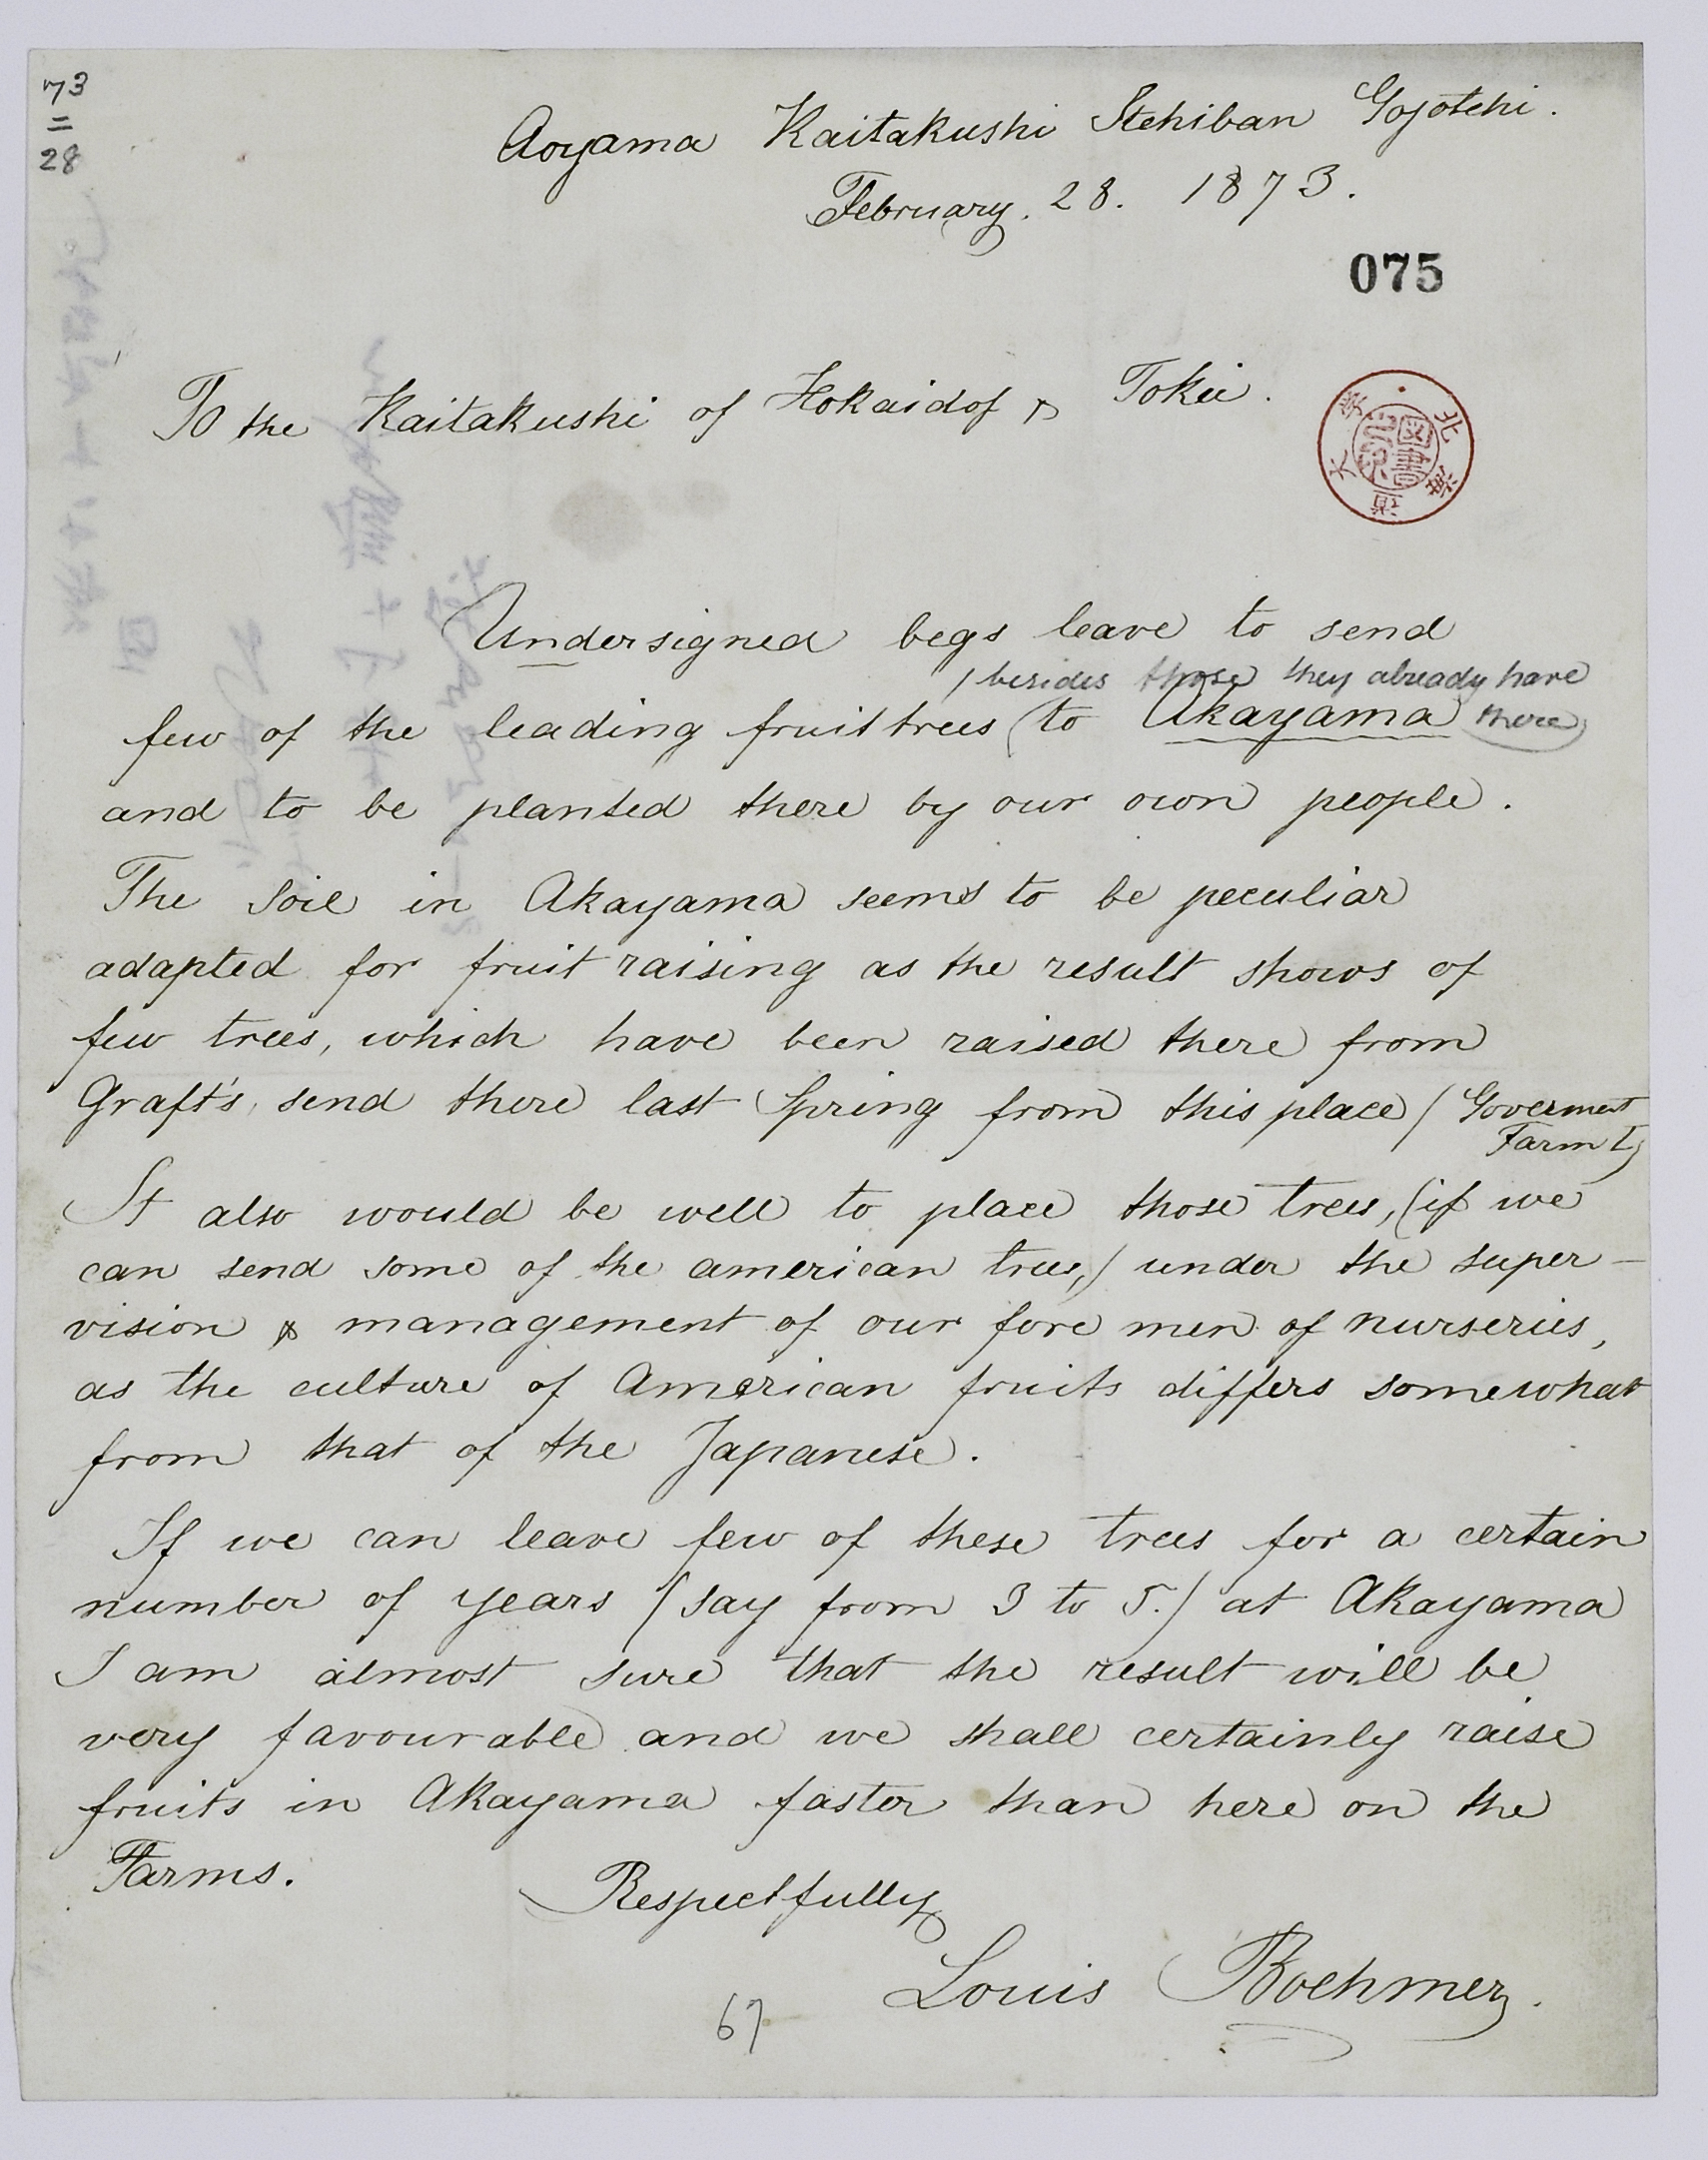 73
=
28
Aoyama Kaitakushi Itchiban Goyotchi.
February. 28. 1873.
075
To the Kaitakushi of Hokaidof & Tokei.
北海道大学
図書
Undersigned begs leave to send
/ besides those they already have
few of the leading fruit trees (to Akayama there)
and to be planted there by our own people.
The soil in Akayama seems to be peculiar
adapted for fruit raising as the result shows of
few trees, which have been raised there from
Graft's, send there last Spring from this place / Goverment
Farm I)
It also would be well to place those trees, (if we
can send some of the american trees,) under the super-
vision & management of our fore men of nurseries,
as the culture of American fruits differs somewhat
from that of the Japanese.
If we can leave few of these trees for a certain
number of years / say from 3 to 5. / at Akayama
I am almost sure that the result will be
very favourable and we shall certainly raise
fruits in Akayama faster than here on the
Farms.
Respectfully
Louis Boehmer.
67